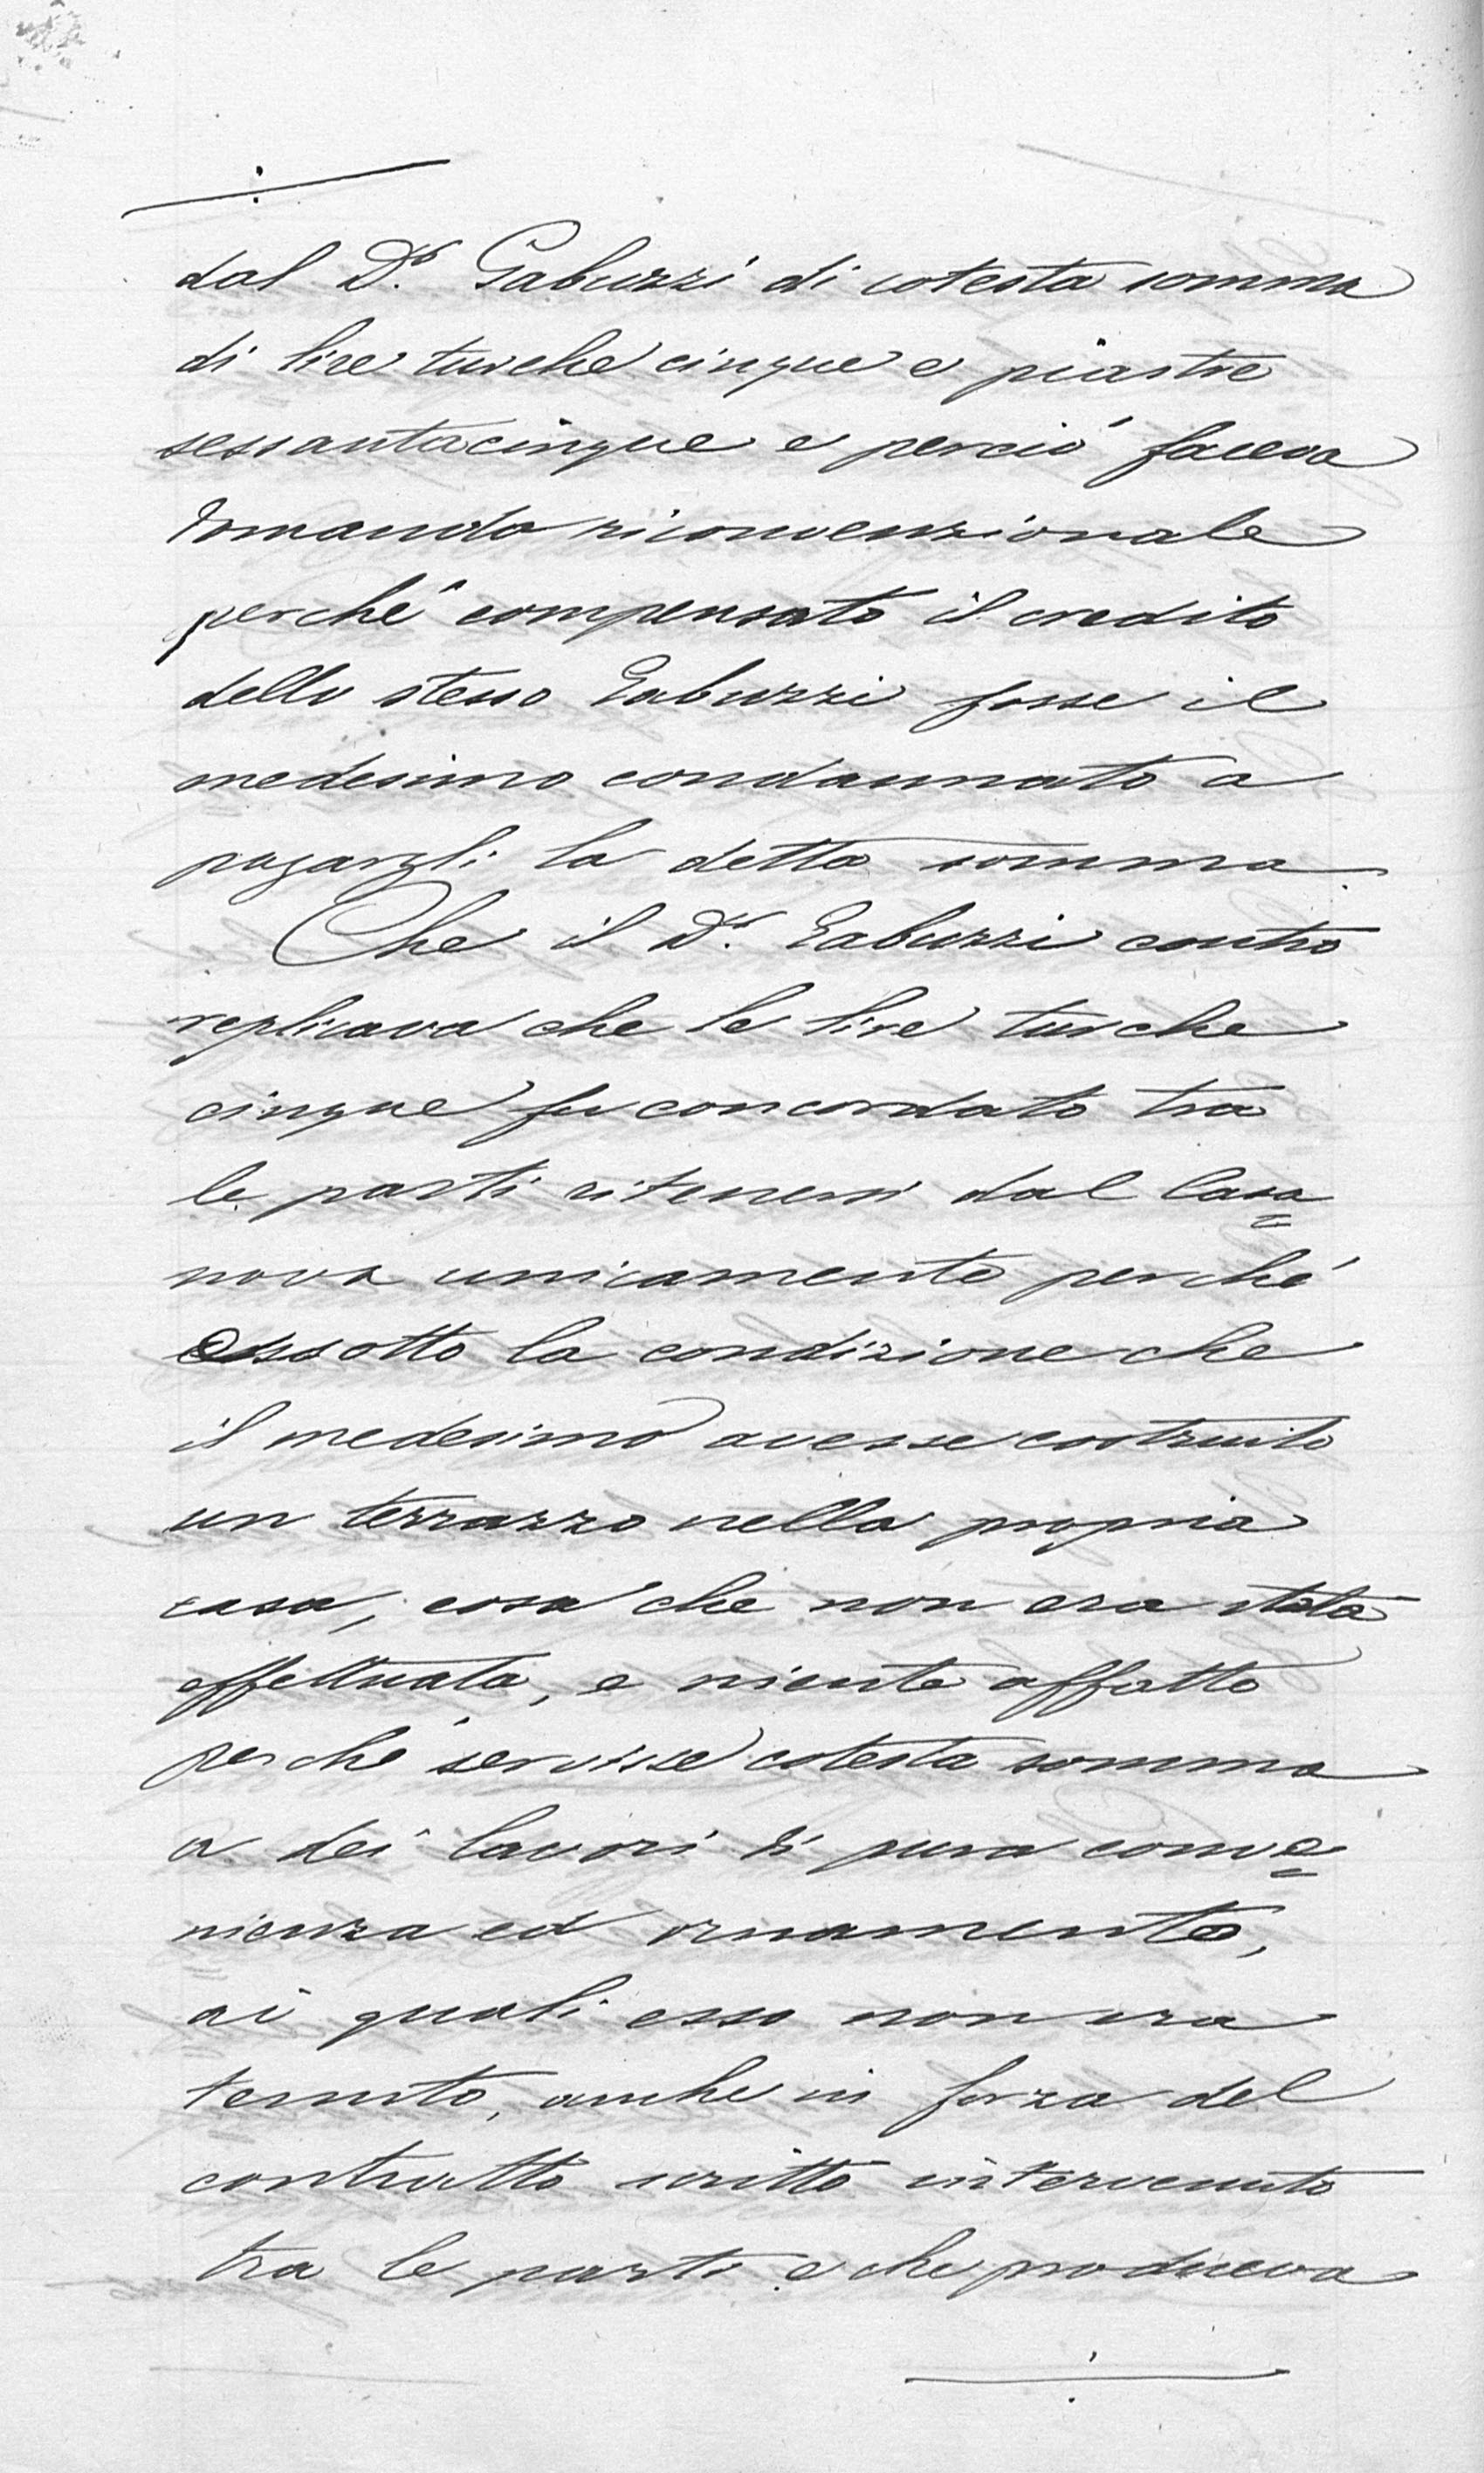 dal D.r Gabuzzi di cotesta somma
di lire turche cinque e piastre
sessantacinque e perciò faceva
domanda riconvenzionale
perché compensato il credito
dello stesso Gabuzzi fosse il
medesimo condannato a
pagargli la detta somma.
Che il D.r Gabuzzi contro
replicava che le lire turche
cinque fu concordato tra
le parti ritenersi dal Casa=
nova unicamente perché
sotto la condizione che
il medesimo avesse costruito
un terrazzo nella propria
casa, cosa che non era stata
effettuata, e niente affatto
perché servisse cotesta somma
a dei lavori di pura conve=
nienza ed ornamento,
ai quali esso non era
tenuto, anche in forza del
contratto scritto intervenuto
tra le parti e che produceva